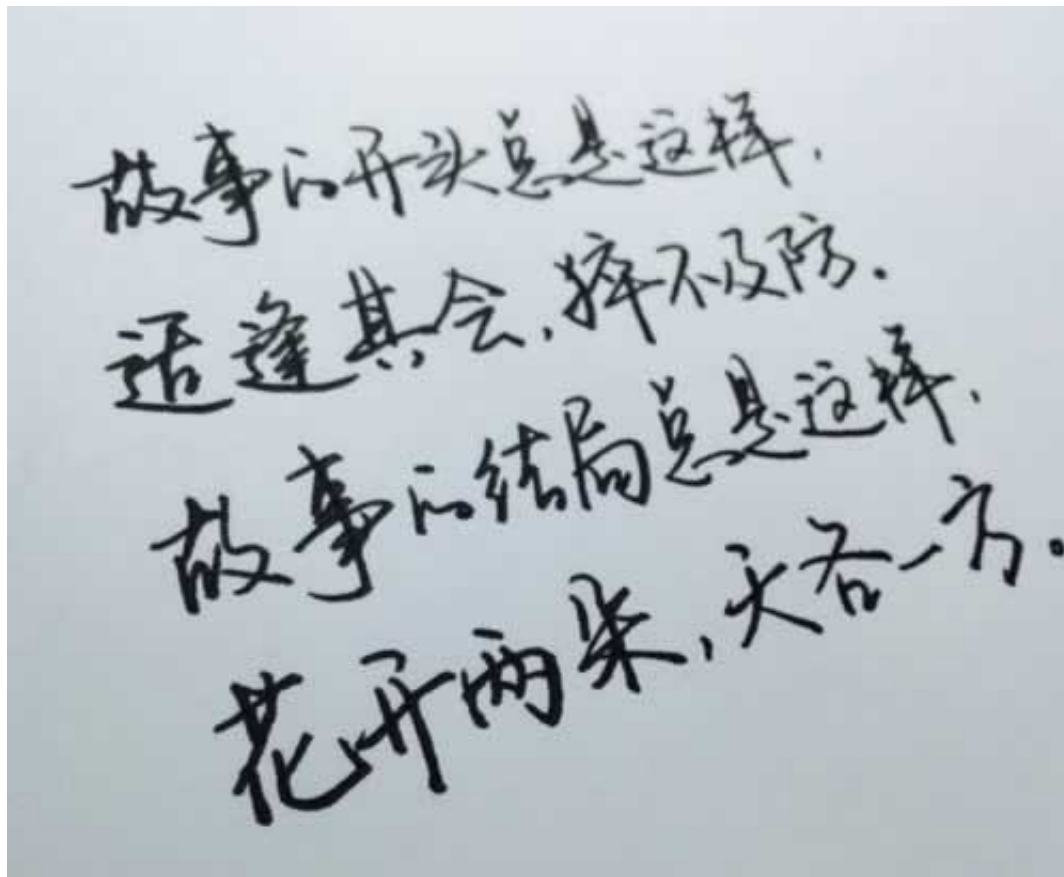 故事的开头总是这样.
适逢其会,猝不及防.
故事的结局总是这样.
花开两朵,天各一方。